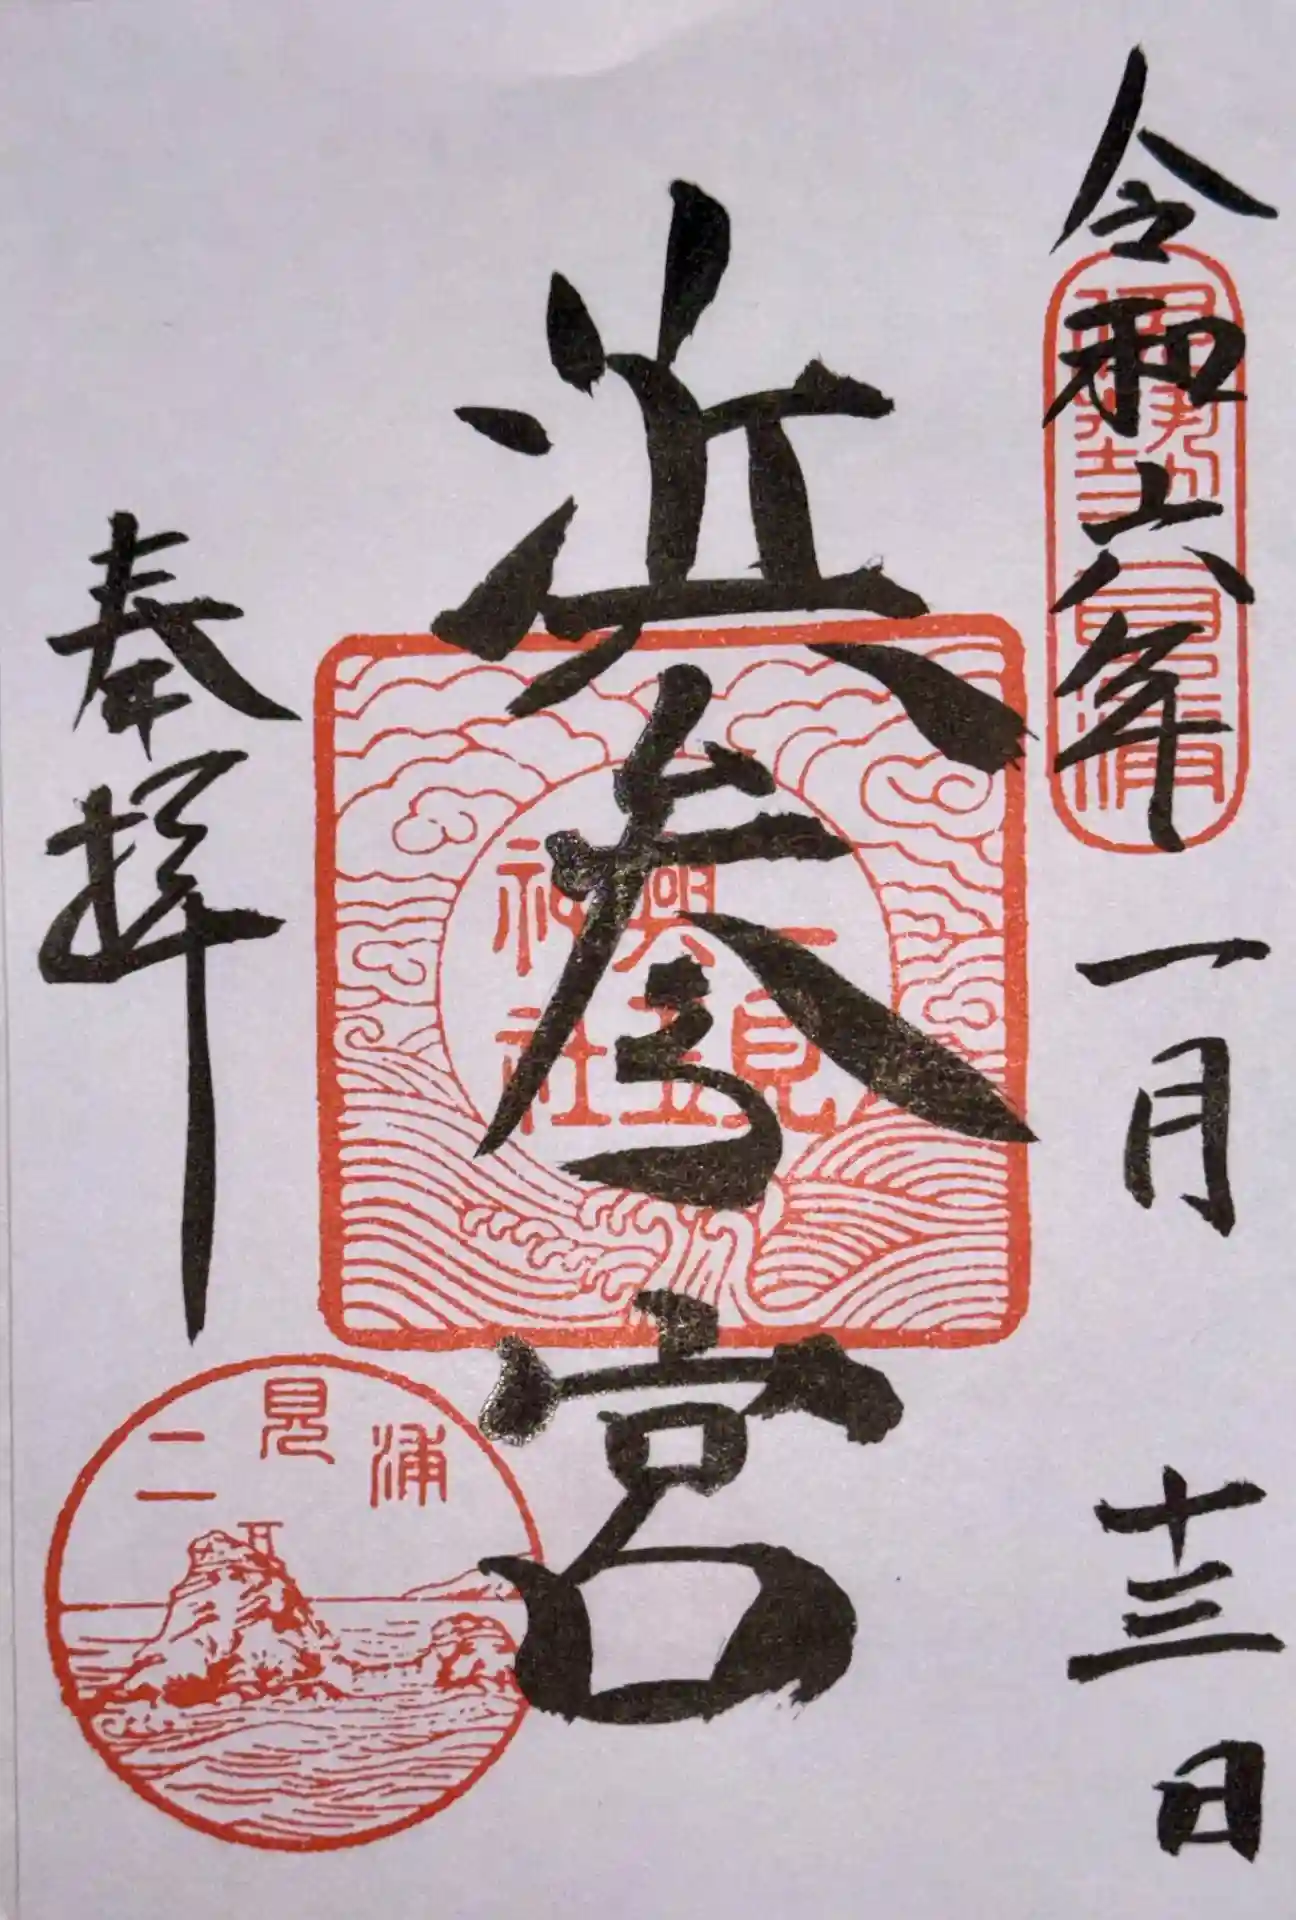 令和六年一月十三日
伊勢二見浦
浜参宮
二見
興玉
神社
奉拝
二見浦